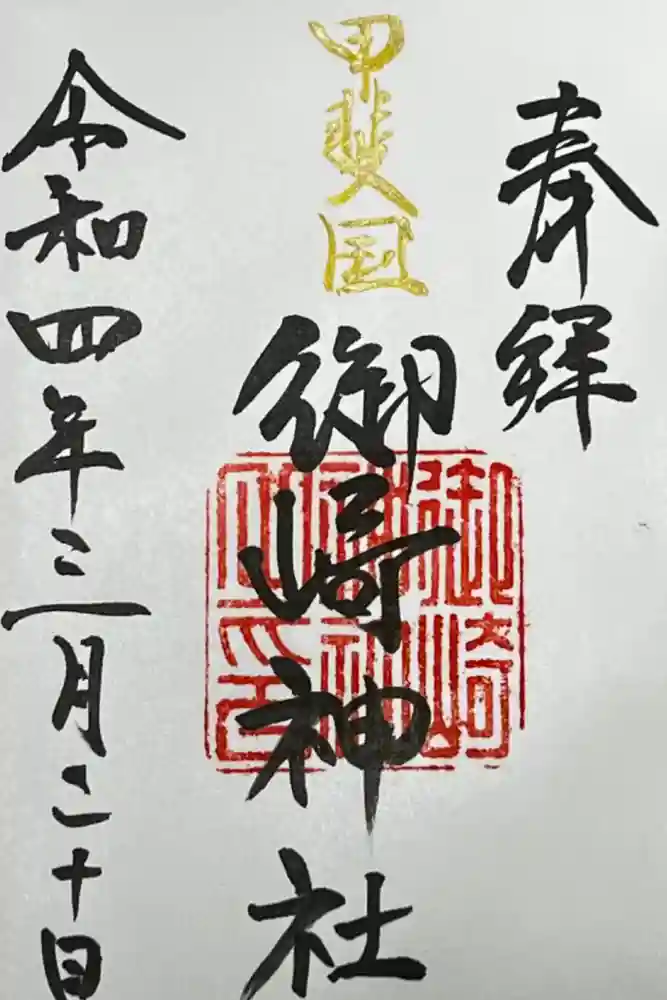 奉拝
甲斐国
御崎神社
令和四年三月二十日